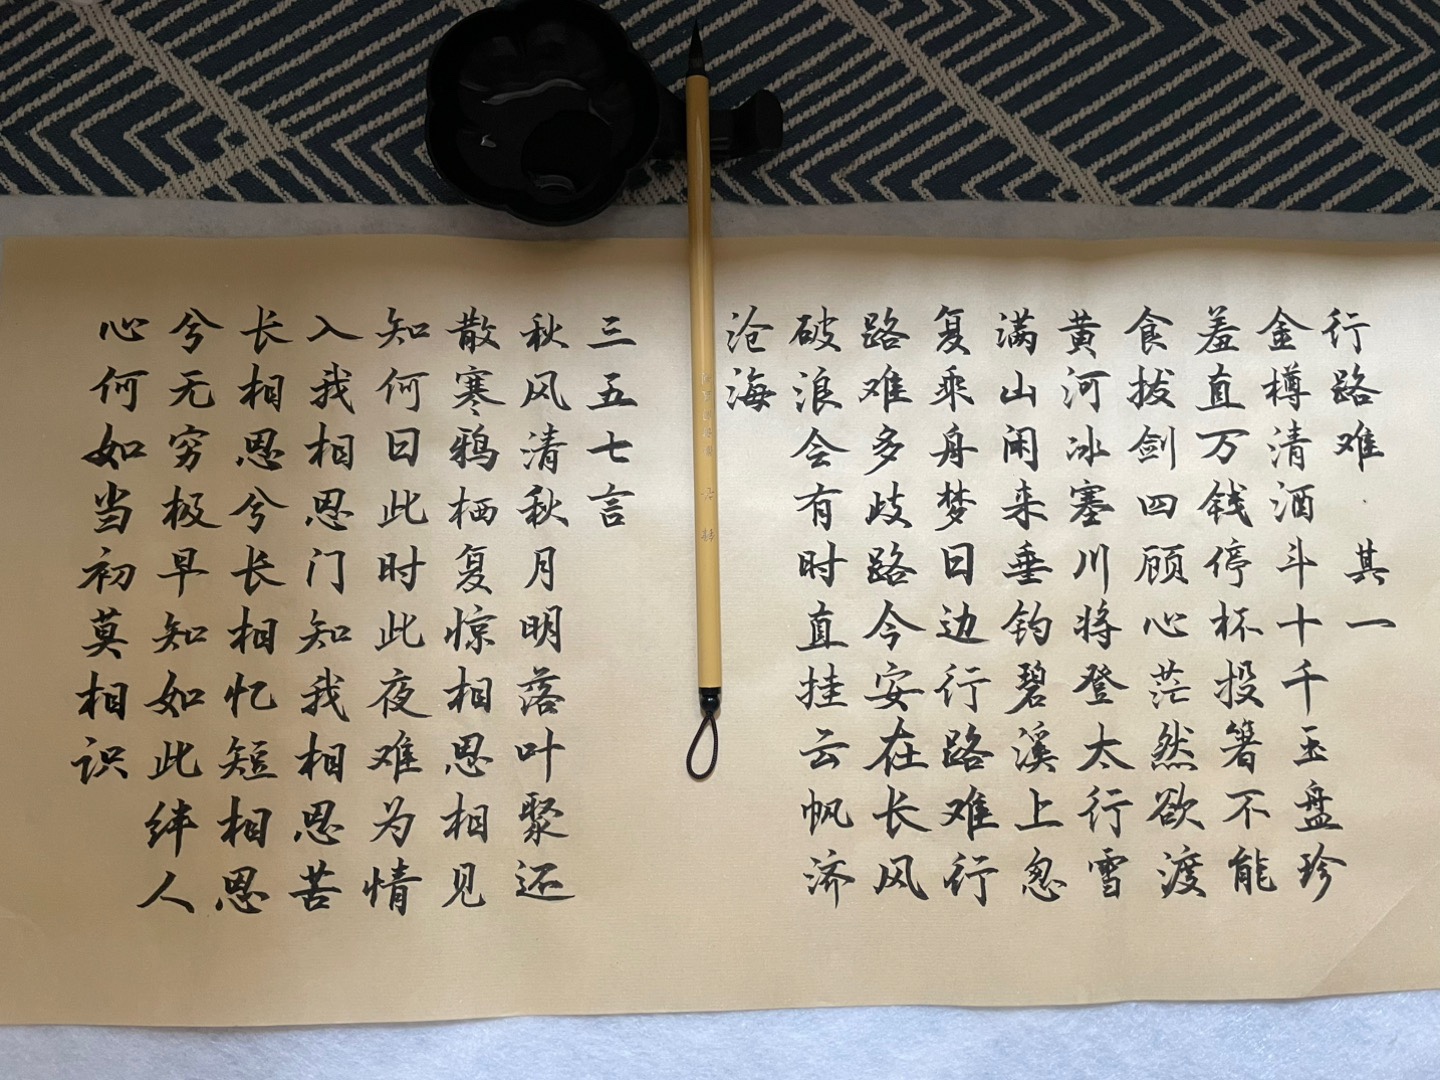 行路难·其一
金樽清酒斗十千玉盘珍
羞直万钱停杯投箸不能
食拔剑四顾心茫然欲渡
黄河冰塞川将登太行雪
满山闲来垂钓碧溪上忽
复乘舟梦日边行路难行
路难多歧路今安在长风
破浪会有时直挂云帆济
沧海
三五七言
秋风清秋月明落叶聚还
散寒鸦栖复惊相思相见
知何日此时此夜难为情
入我相思门知我相思苦
长相思兮长相忆短相思
兮无穷极早知如此绊人
心何如当初莫相识